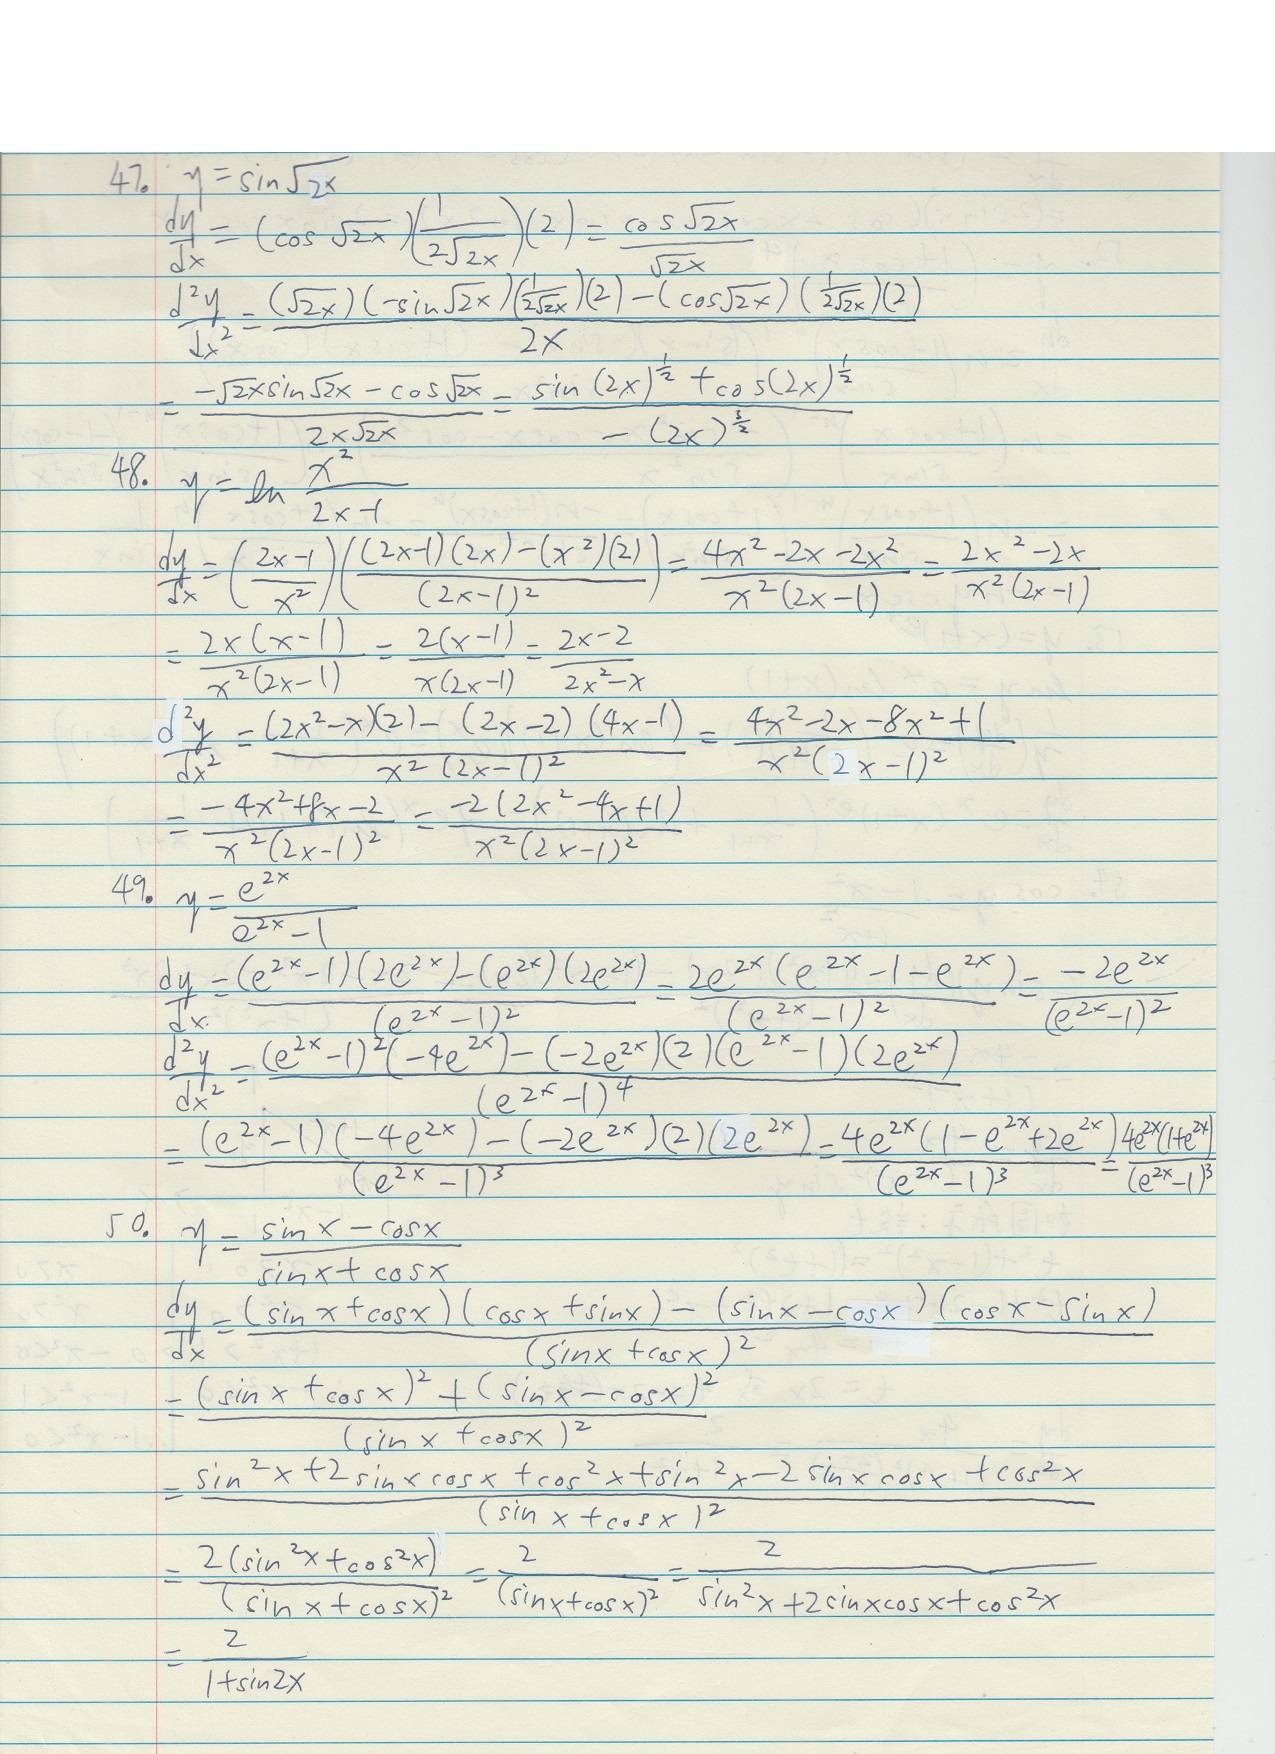 47. y = sin√2x
dy/dx = (cos √2x)(1/(2√2x))(2) = cos √2x / √2x
d²y/dx² = ((√2x)(-sin√2x)(1/(2√2x))(2) - (cos√2x)(1/(2√2x))(2)) / 2x
= (-√2x sin√2x - cos√2x) / (2x√2x) = (sin (2x)^(1/2) + cos(2x)^(1/2)) / (-(2x)^(3/2))
48. y = ln x²/(2x-1)
dy/dx = ((2x-1)/x²)(((2x-1)(2x)-(x²)(2))/(2x-1)²) = (4x²-2x-2x²)/(x²(2x-1)) = (2x²-2x)/(x²(2x-1))
= 2x(x-1)/(x²(2x-1)) = 2(x-1)/(x(2x-1)) = (2x-2)/(2x²-x)
d²y/dx² = ((2x²-x)(2) - (2x-2)(4x-1))/(x²(2x-1)²) = (4x²-2x-8x²+1)/(x²(2x-1)²)
= (-4x²+8x-2)/(x²(2x-1)²) = -2(2x²-4x+1)/(x²(2x-1)²)
49. y = e^(2x)/(e^(2x)-1)
dy/dx = ((e^(2x)-1)(2e^(2x))-(e^(2x))(2e^(2x)))/(e^(2x)-1)² = 2e^(2x)(e^(2x)-1-e^(2x))/(e^(2x)-1)² = -2e^(2x)/(e^(2x)-1)²
d²y/dx² = ((e^(2x)-1)²(-4e^(2x))-(-2e^(2x))(2)(e^(2x)-1)(2e^(2x)))/(e^(2x)-1)⁴
= ((e^(2x)-1)(-4e^(2x))-(-2e^(2x))(2)(2e^(2x)))/(e^(2x)-1)³ = 4e^(2x)(1-e^(2x)+2e^(2x))/(e^(2x)-1)³ = 4e^(2x)(1+e^(2x))/(e^(2x)-1)³
50. y = (sin x - cos x)/(sin x + cos x)
dy/dx = ((sin x + cos x)(cos x + sin x) - (sin x - cos x)(cos x - sin x))/(sin x + cos x)²
= ((sin x + cos x)² + (sin x - cos x)²)/(sin x + cos x)²
= (sin²x + 2 sin x cos x + cos²x + sin²x - 2 sin x cos x + cos²x)/(sin x + cos x)²
= 2(sin²x + cos²x)/(sin x + cos x)² = 2/(sin x + cos x)² = 2/(sin²x + 2 sin x cos x + cos²x)
= 2/(1+sin2x)